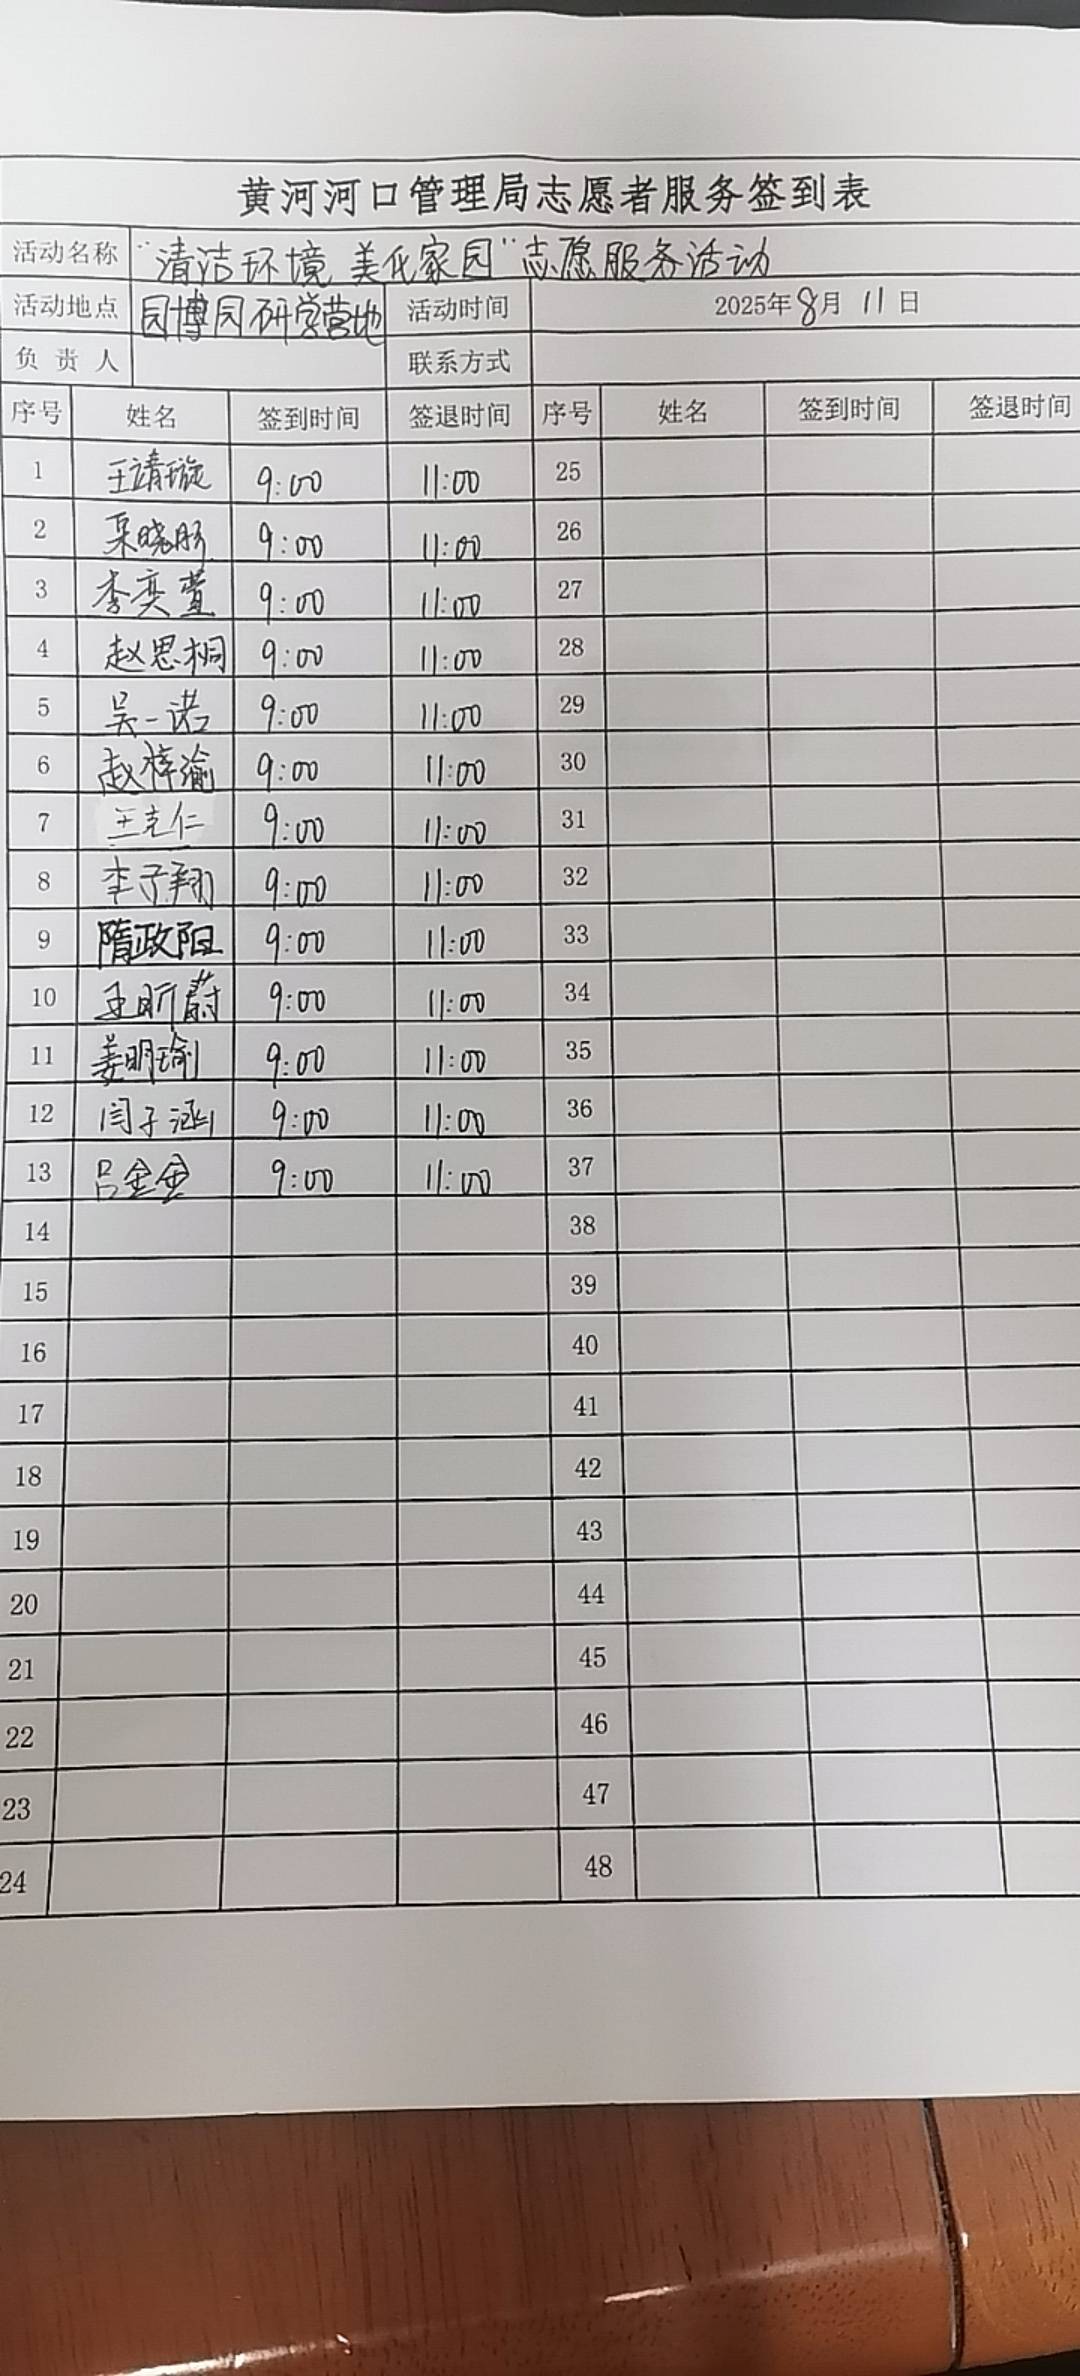 黄河河口管理局志愿者服务签到表
活动名称 "清洁环境 美化家园"志愿服务活动
活动地点 园博园研学营地 活动时间 2025年8月11日
负责人 联系方式
序号 姓名 签到时间 签退时间 序号 姓名 签到时间 签退时间
1 王靖璇 9:00 11:00 25
2 晓彤 9:00 11:00 26
3 李奕萱 9:00 11:00 27
4 赵思桐 9:00 11:00 28
5 吴一诺 9:00 11:00 29
6 赵梓渝 9:00 11:00 30
7 王克仁 9:00 11:00 31
8 李子翔 9:00 11:00 32
9 隋政阳 9:00 11:00 33
10 王昕蔚 9:00 11:00 34
11 姜明瑜 9:00 11:00 35
12 闫子涵 9:00 11:00 36
13 吕金金 9:00 11:00 37
14 38
15 39
16 40
17 41
18 42
19 43
20 44
21 45
22 46
23 47
24 48